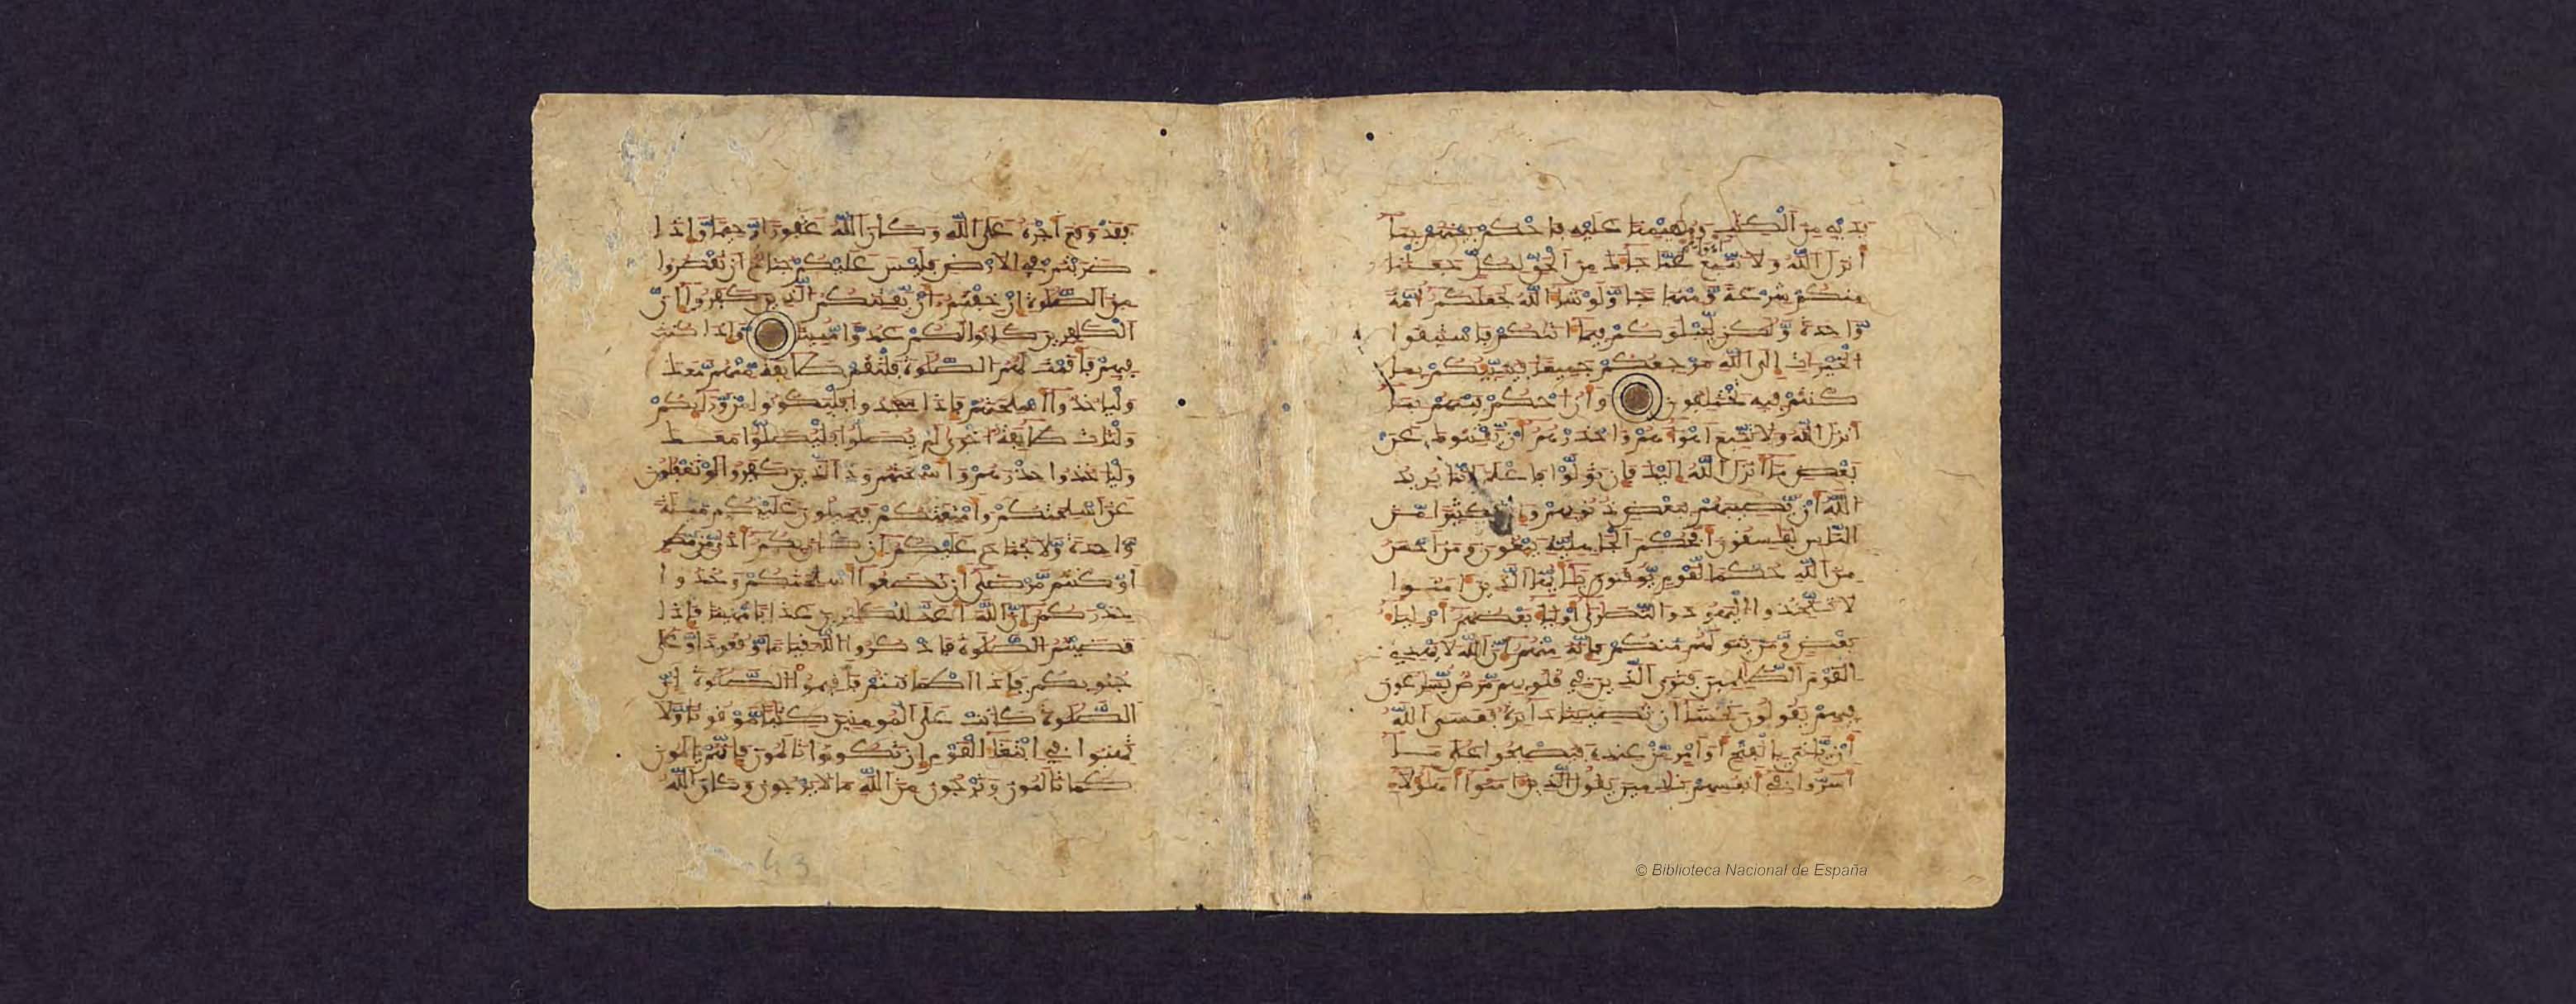 يديه من الكتب ومهيمنا عليه فاحكم بينهم بما
انزل الله ولا تتبع اهواهم عما جاك من الحق لكل جعلنا
منكم شرعة ومنهاجا ولو شا الله لجعلكم امة
وحدة ولكن ليبلوكم فيما اتيكم فاستبقوا
الخيرات الى الله مرجعكم جميعا فينبيكم بما
كنتم فيه تختلفون وان احكم بينهم بما
انزل الله ولا تتبع اهواهم واحذرهم ان يفتنوك عن
بعض ما انزل الله اليك فان تولوا فاعلم انما يريد
الله ان يصيبهم ببعض ذنوبهم وان كثيرا من
الناس لفسقون افحكم الجاهلية يبغون ومن احسن
من الله حكما لقوم يوقنون يايها الذين امنوا
لا تتخذوا اليهود والنصرى اوليا بعضهم اوليا
بعض ومن يتولهم منكم فانه منهم ان الله لا يهدي
القوم الظلمين فترى الذين في قلوبهم مرض يسرعون
فيهم يقولون نخشى ان تصيبنا دايرة فعسى الله
ان ياتي بالفتح او امر من عنده فيصبحوا على ما
اسروا في انفسهم ندمين يقول الذين امنوا اهؤلا
فقد وقع اجره على الله وكان الله غفورا رحيما واذا
ضربتم في الارض فليس عليكم جناح ان تقصروا
من الصلوة ان خفتم ان يفتنكم الذين كفروا ان
الكفرين كانوا لكم عدوا مبينا واذا كنت
فيهم فاقمت لهم الصلوة فلتقم طايفة منهم معك
ولياخذوا اسلحتهم فاذا سجدوا فليكونوا من ورايكم
ولتات طايفة اخرى لم يصلوا فليصلوا معك
ولياخذوا حذرهم واسلحتهم ود الذين كفروا لو تغفلون
عن اسلحتكم وامتعتكم فيميلون عليكم ميلة
وحدة ولا جناح عليكم ان كان بكم اذى من مطر
او كنتم مرضى ان تضعوا اسلحتكم وخذوا
حذركم ان الله اعد للكفرين عذابا مهينا فاذا
قضيتم الصلوة فاذكروا الله قياما وقعودا وعلى
جنوبكم فاذا اطماننتم فاقيموا الصلوة ان
الصلوة كانت على المومنين كتبا موقوتا ولا
تهنوا في ابتغا القوم ان تكونوا تالمون فانهم يالمون
كما تالمون وترجون من الله ما لا يرجون وكان الله
43
© Biblioteca Nacional de España